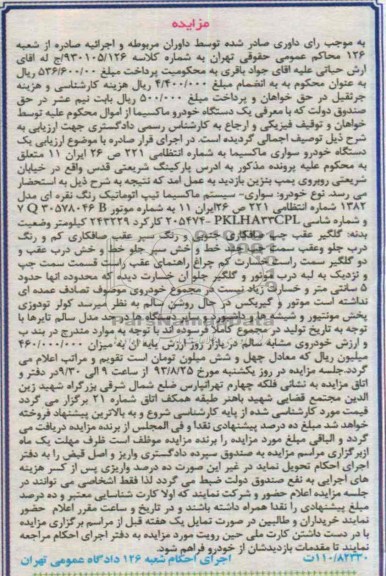 مزایده
به موجب رای داوری صادر شده توسط داوران مربوطه و اجرائیه صادره از شعبه
۱۲۶ محاکم عمومی حقوقی تهران به شماره کلاسه ۹۳۰۱۰۵/۱۲۶/ج له اقای
ارش حیاتی علیه اقای جواد باقری به محکومیت پرداخت مبلغ ۵۳۶/۶۰۰/۰۰
به عنوان محکوم به به انضمام مبلغ ۴/۴۰۰/۰۰۰ ریال هزینه کارشناسی و هزینه
جرثقیل در حق خواهان و پرداخت مبلغ ۵۰۰/۰۰۰ ریال بابت نیم عشر در حق
صندوق دولت که با معرفی یک دستگاه خودرو ماکسیما از اموال محکوم علیه توسط
خواهان و توقیف فیزیکی و ارجاع به کارشناس رسمی دادگستری جهت ارزیابی به
شرح ذیل توصیف اجمالی گردیده است. در اجرای قرار صادره با موضوع ارزیابی یک
دستگاه خودرو سواری ماکسیما به شماره انتظامی ۲۲۱ ص ۲۶ ایران ۱۱ متعلق
به محکوم علیه پرونده مذکور به ادرس پارکینگ شریعتی قدس واقع در خیابان
شریعتی روبروی پمپ بنزین بازدید به عمل امد که نتیجه به شرح ذیل به استحضار
می رسد. نوع خودرو: سواری- سیستم ماکسیما تیپ اتوماتیک رنگ نقره ای مدل
۱۳۸۲ شماره انتظامی ۲۲۱ ص ۲۶ ایران ۱۱ به شماره موتور
و شماره شاسی PKLHA33CPL کارکرد ۲۴۳۲۲۹ کیلومتر وضعیت
بدنه: گلگیر عقب چپ صافکاری جزئی و رنگ سپر عقب صافکاری کم و رنگ
درب جلو وعقب سمت چپ چند خط و خش سپر جلو خط و خش درب عقب و
دو گلگیر سمت راست خسارت کم چراغ راهنمای عقب راست قسمت سمت چپ
و نزدیک به لبه درب موتور و گلگیر جلو ان خسارت دیده که محدوده انها حدود
۵ سانتی متر و خسارت زیاد نیست در مجموع خودروی موصوف تصادف عمده ای
نداشته است موتور و گیربکس در حال روشن سالم به نظر میرسد کولر تودوزی
پخش مونتیور و شیشه ها و داشبورد و سایر دستگاه ها در حد مدل سالم تایرها با
توجه به تاریخ تولید در مجموع کاملا فرسوده لذا با توجه به موارد مندرج در بند ب
و ارزش خودروی مشابه سالم در بازار روز ارزش پایه ان به میزان ۴۶۰/۰۰۰/۰۰۰
میلیون ریال که معادل چهل و شش میلیون تومان است تقویم و مراتب اعلام می
گردد.جلسه مزایده در روز یکشنبه مورخ ۹۳/۸/۲۵ از ساعت ۹ الی ۹/۳۰در دفتر و
اتاق مزایده به نشانی فلکه چهارم تهرانپارس ضلع شمال شرقی بزرگراه شهید زین
الدین مجتمع قضایی شهید باهنر طبقه همکف اتاق شماره ۲۱ برگزار می گردد
قیمت مورد کارشناسی شده از پایه کارشناسی شروع و به بالاترین پیشنهاد فروخته
خواهد شد مبلغ ده درصد پیشنهادی نقدا و فی المجلس از برنده مزایده دریافت می
گردد و الباقی مبلغ مورد مزایده را برنده مزایده موظف است ظرف مهلت یک ماه
ازبرگزاری مراسم مزایده به صندوق سپرده دادگستری واریز و اصل قبض را به دفتر
اجرای احکام تحویل نماید در غیر این صورت ده درصد واریزی پس از کسر هزینه
های اجرایی به نفع صندوق دولت ضبط می گردد لذا فقط اشخاصی می توانند در
جلسه مزایده اعلام حضور و شرکت نمایند که اولا کارت شناسایی معتبر و ده درصد
مبلغ پیشنهادی را نقدا همراه داشته باشند و در تاریخ و ساعت مقرر اعلام حضور
نمایند خریداران و طالبین در صورت تمایل یک هفته قبل از مراسم برگزاری مزایده
با در دست داشتن کارت ملی حین رویت مورد مزایده به دفتر اجرای احکام مراجعه
نمایند تا مقدمات بازدیدشان از خودرو فراهم شود.
۱۱۰/۸۲۳۳۰ت اجرای احکام شعبه ۱۲۶ دادگاه عمومی تهران